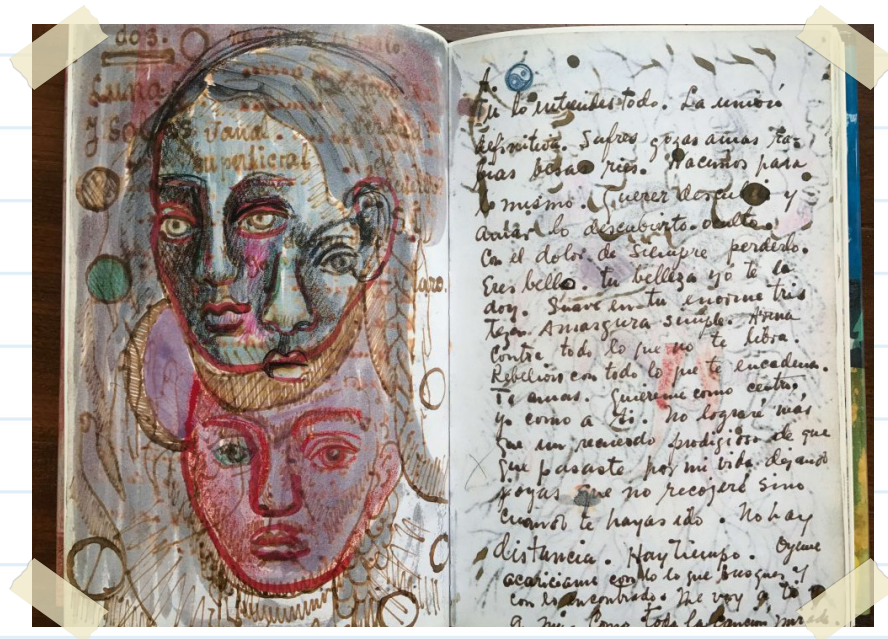 dos.
Luna
y Sol
superficial
de
A.
Tu lo entiendes todo. La unión
definitiva. Sufres gozas amas ra-
bias besas ries. Nacimos para
lo mismo. Querer descubrir y
amar lo descubierto. oculto.
Con el dolor de siempre perderlo.
Eres bello. tu belleza yo te la
doy. Suave en tu enorme tris
teza. Amargura simple. Arma
contra todo lo que no te libra.
Rebelion con todo lo que te encadena.
Te amas. quiereme como centro.
yo como a ti. No lograré más
que un recuerdo prodigioso de que
que pasaste por mi vida dejando
joyas que no recojeré sino
cuando te hayas ido. No hay
distancia. Hay tiempo. Oyeme
acariciame con lo que busques y
con lo encontrado. Me voy a ti
a mi. Como toda la canción mirada.